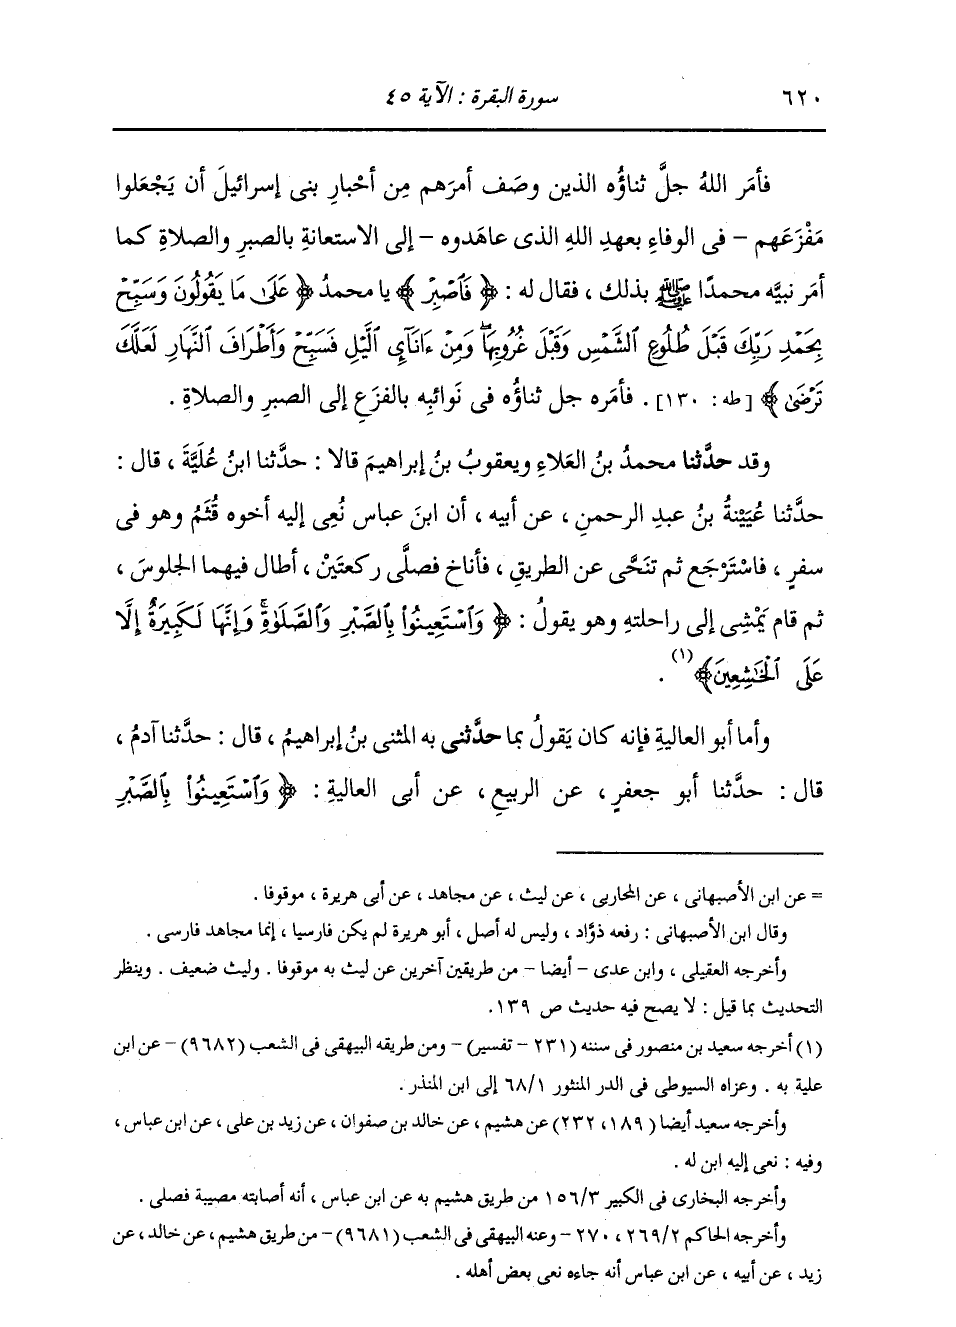 ٦٢٠ سورة البقرة : الآية ٤٥
فأمَر اللهُ جلَّ ثناؤُه الذين وصَف أمرَهم مِن أحْبارِ بنى إسرائيلَ أن يَجْعَلوا
مَفْزَعَهم – فى الوفاءِ بعهدِ اللهِ الذى عاهَدوه – إلى الاستعانةِ بالصبرِ والصلاةِ كما
أمَر نبيَّه محمدًا ﷺ بذلك ، فقال له : ﴿ فَٱصْبِرْ ﴾ يا محمدُ ﴿ عَلَىٰ مَا يَقُولُونَ وَسَبِّحْ
بِحَمْدِ رَبِّكَ قَبْلَ طُلُوعِ ٱلشَّمْسِ وَقَبْلَ غُرُوبِهَا ۖ وَمِنْ ءَانَآىِٕ ٱلَّيْلِ فَسَبِّحْ وَأَطْرَافَ ٱلنَّهَارِ لَعَلَّكَ
تَرْضَىٰ ﴾ [ طه : ١٣٠ ] . فأمَره جل ثناؤُه فى نَوائبِه بالفزَعِ إلى الصبرِ والصلاةِ .
وقد حدَّثنا محمدُ بنُ العَلاءِ ويعقوبُ بنُ إبراهيمَ قالا : حدَّثنا ابنُ عُلَيَّةَ ، قال :
حدَّثنا عُيَيْنةُ بنُ عبدِ الرحمنِ ، عن أبيه ، أن ابنَ عباسٍ نُعِى إليه أخوه قُثَمُ وهو فى
سفرٍ ، فاسْتَرْجَع ثم تنَحَّى عن الطريقِ ، فأناخ فصلَّى ركعتَيْن ، أطال فيهما الجلوسَ ،
ثم قام يَمْشِى إلى راحلتِه وهو يقولُ : ﴿ وَٱسْتَعِينُوا۟ بِٱلصَّبْرِ وَٱلصَّلَوٰةِ ۚ وَإِنَّهَا لَكَبِيرَةٌ إِلَّا
عَلَى ٱلْخَٰشِعِينَ ﴾ (١) .
وأما أبو العاليةِ فإنه كان يَقولُ بما حدَّثنى به المثنى بنُ إبراهيمَ ، قال : حدَّثنا آدمُ ،
قال : حدَّثنا أبو جعفرٍ ، عن الربيعِ ، عن أبى العاليةِ : ﴿ وَٱسْتَعِينُوا۟ بِٱلصَّبْرِ
= عن ابن الأصبهانى ، عن المحاربى ، عن ليث ، عن مجاهد ، عن أبى هريرة ، موقوفا .
وقال ابن الأصبهانى : رفعه ذؤاد ، وليس له أصل ، أبو هريرة لم يكن فارسيا ، إنما مجاهد فارسى .
وأخرجه العقيلى ، وابن عدى – أيضا – من طريقين آخرين عن ليث به موقوفا . وليث ضعيف . وينظر
التحديث بما قيل : لا يصح فيه حديث ص ١٣٩ .
(١) أخرجه سعيد بن منصور فى سننه (٢٣١ – تفسير) – ومن طريقه البيهقى فى الشعب (٩٦٨٢) – عن ابن
علية به . وعزاه السيوطى فى الدر المنثور ٦٨/١ إلى ابن المنذر .
وأخرجه سعيد أيضا ( ١٨٩، ٢٣٢) عن هشيم ، عن خالد بن صفوان ، عن زيد بن على ، عن ابن عباس ،
وفيه : نعى إليه ابن له .
وأخرجه البخارى فى الكبير ١٥٦/٣ من طريق هشيم به عن ابن عباس ، أنه أصابته مصيبة فصلى .
وأخرجه الحاكم ٢٦٩/٢ ، ٢٧٠ – وعنه البيهقى فى الشعب (٩٦٨١) – من طريق هشيم ، عن خالد ، عن
زيد ، عن أبيه ، عن ابن عباس أنه جاءه نعى بعض أهله .